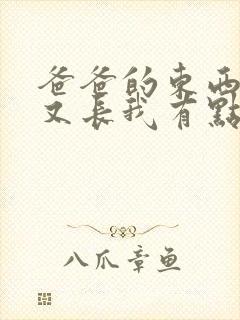 爸爸的東西
又長我有點
八爪章鱼